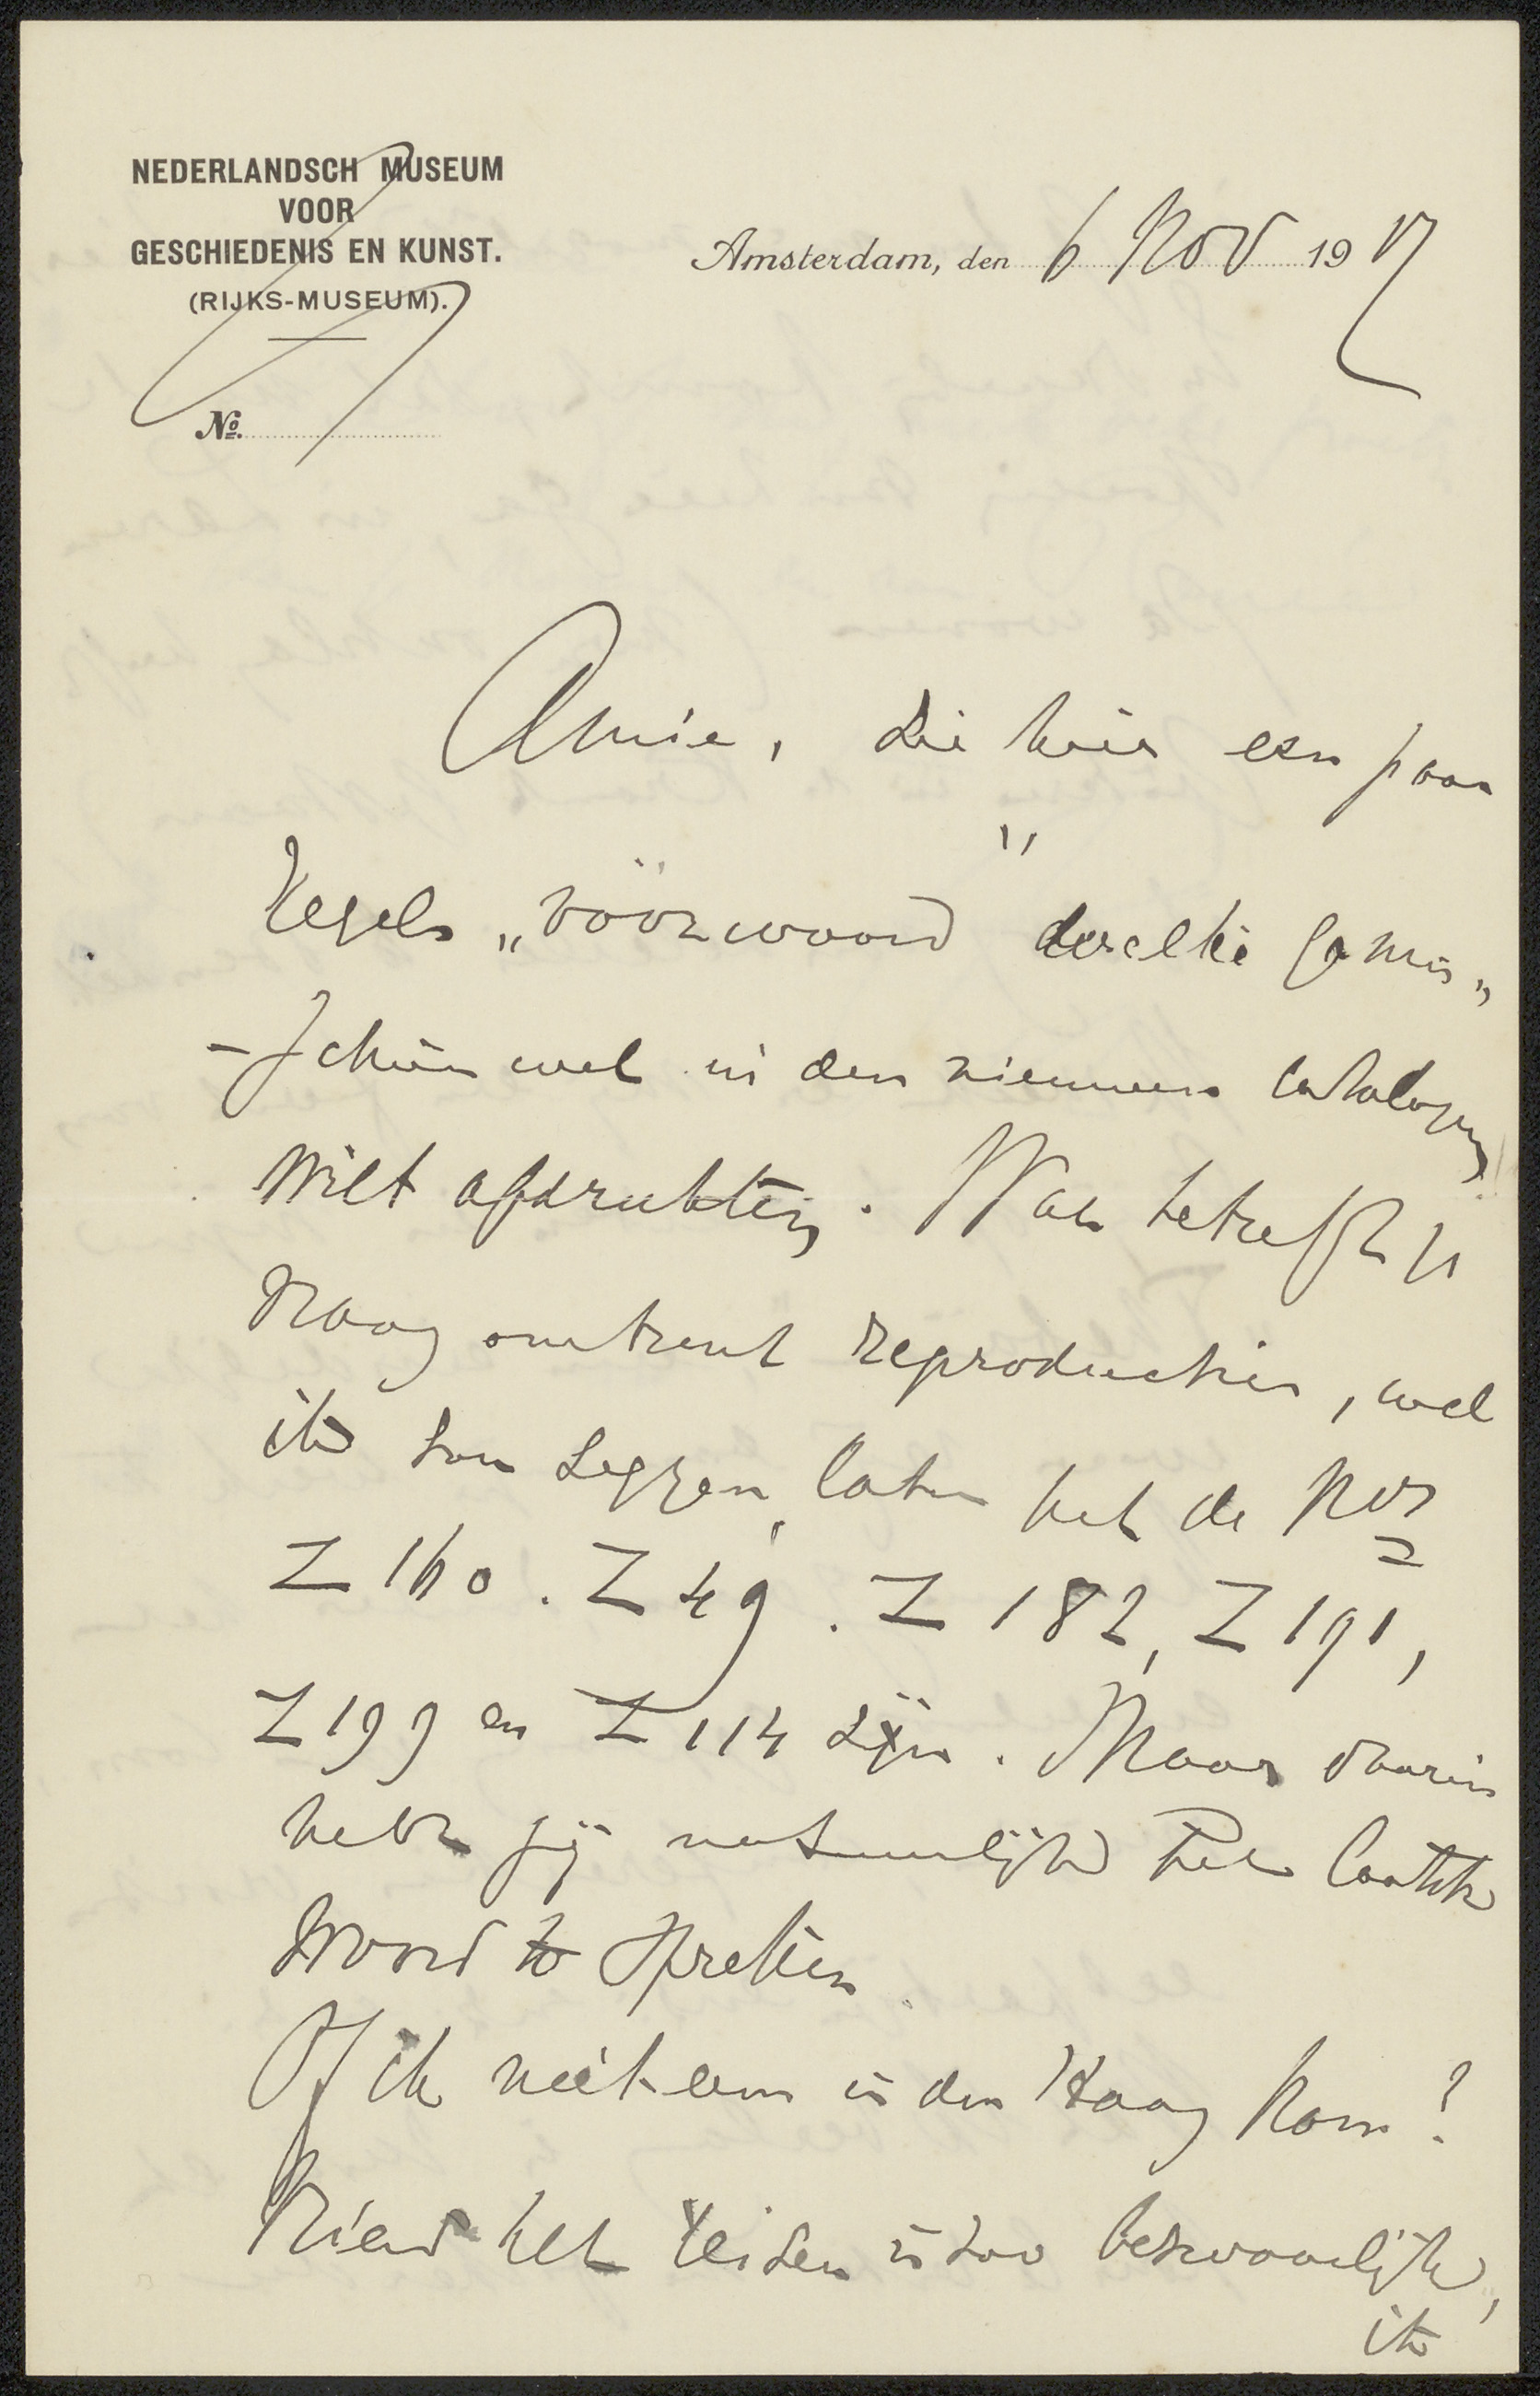 NEDERLANDSCH MUSEUM
VOOR
GESCHIEDENIS EN KUNST.
(RIJKS-MUSEUM).
Nº.
Amsterdam, den 6 Nov 1917
Amice, Zie hier een paar
regels „vöörwoord" die mis„
-schien wel in den nieuwen catalogus
wilt afdrukken. Wat betreft je
vraag omtrent reproducties, wel
ik zou zeggen, laten het de Nos
Z 160. Z 49. Z 182, Z 191,
Z 199 en Z 114 zijn. Maar daarin
hebt jij natuurlijk het laatste
woord te spreken.
Of ik niet eens in den Haag kom?
Vriend het reizen is zoo bezwaarlijk,
ik